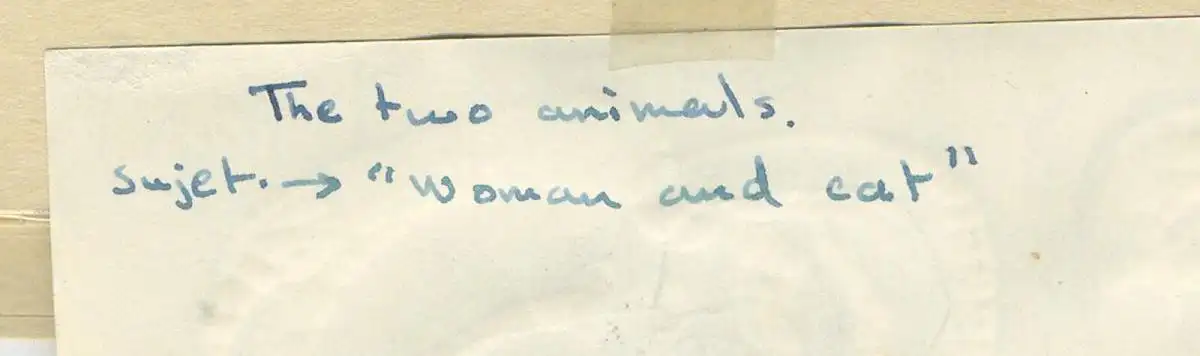 The two animals.
sujet. → "woman and cat"